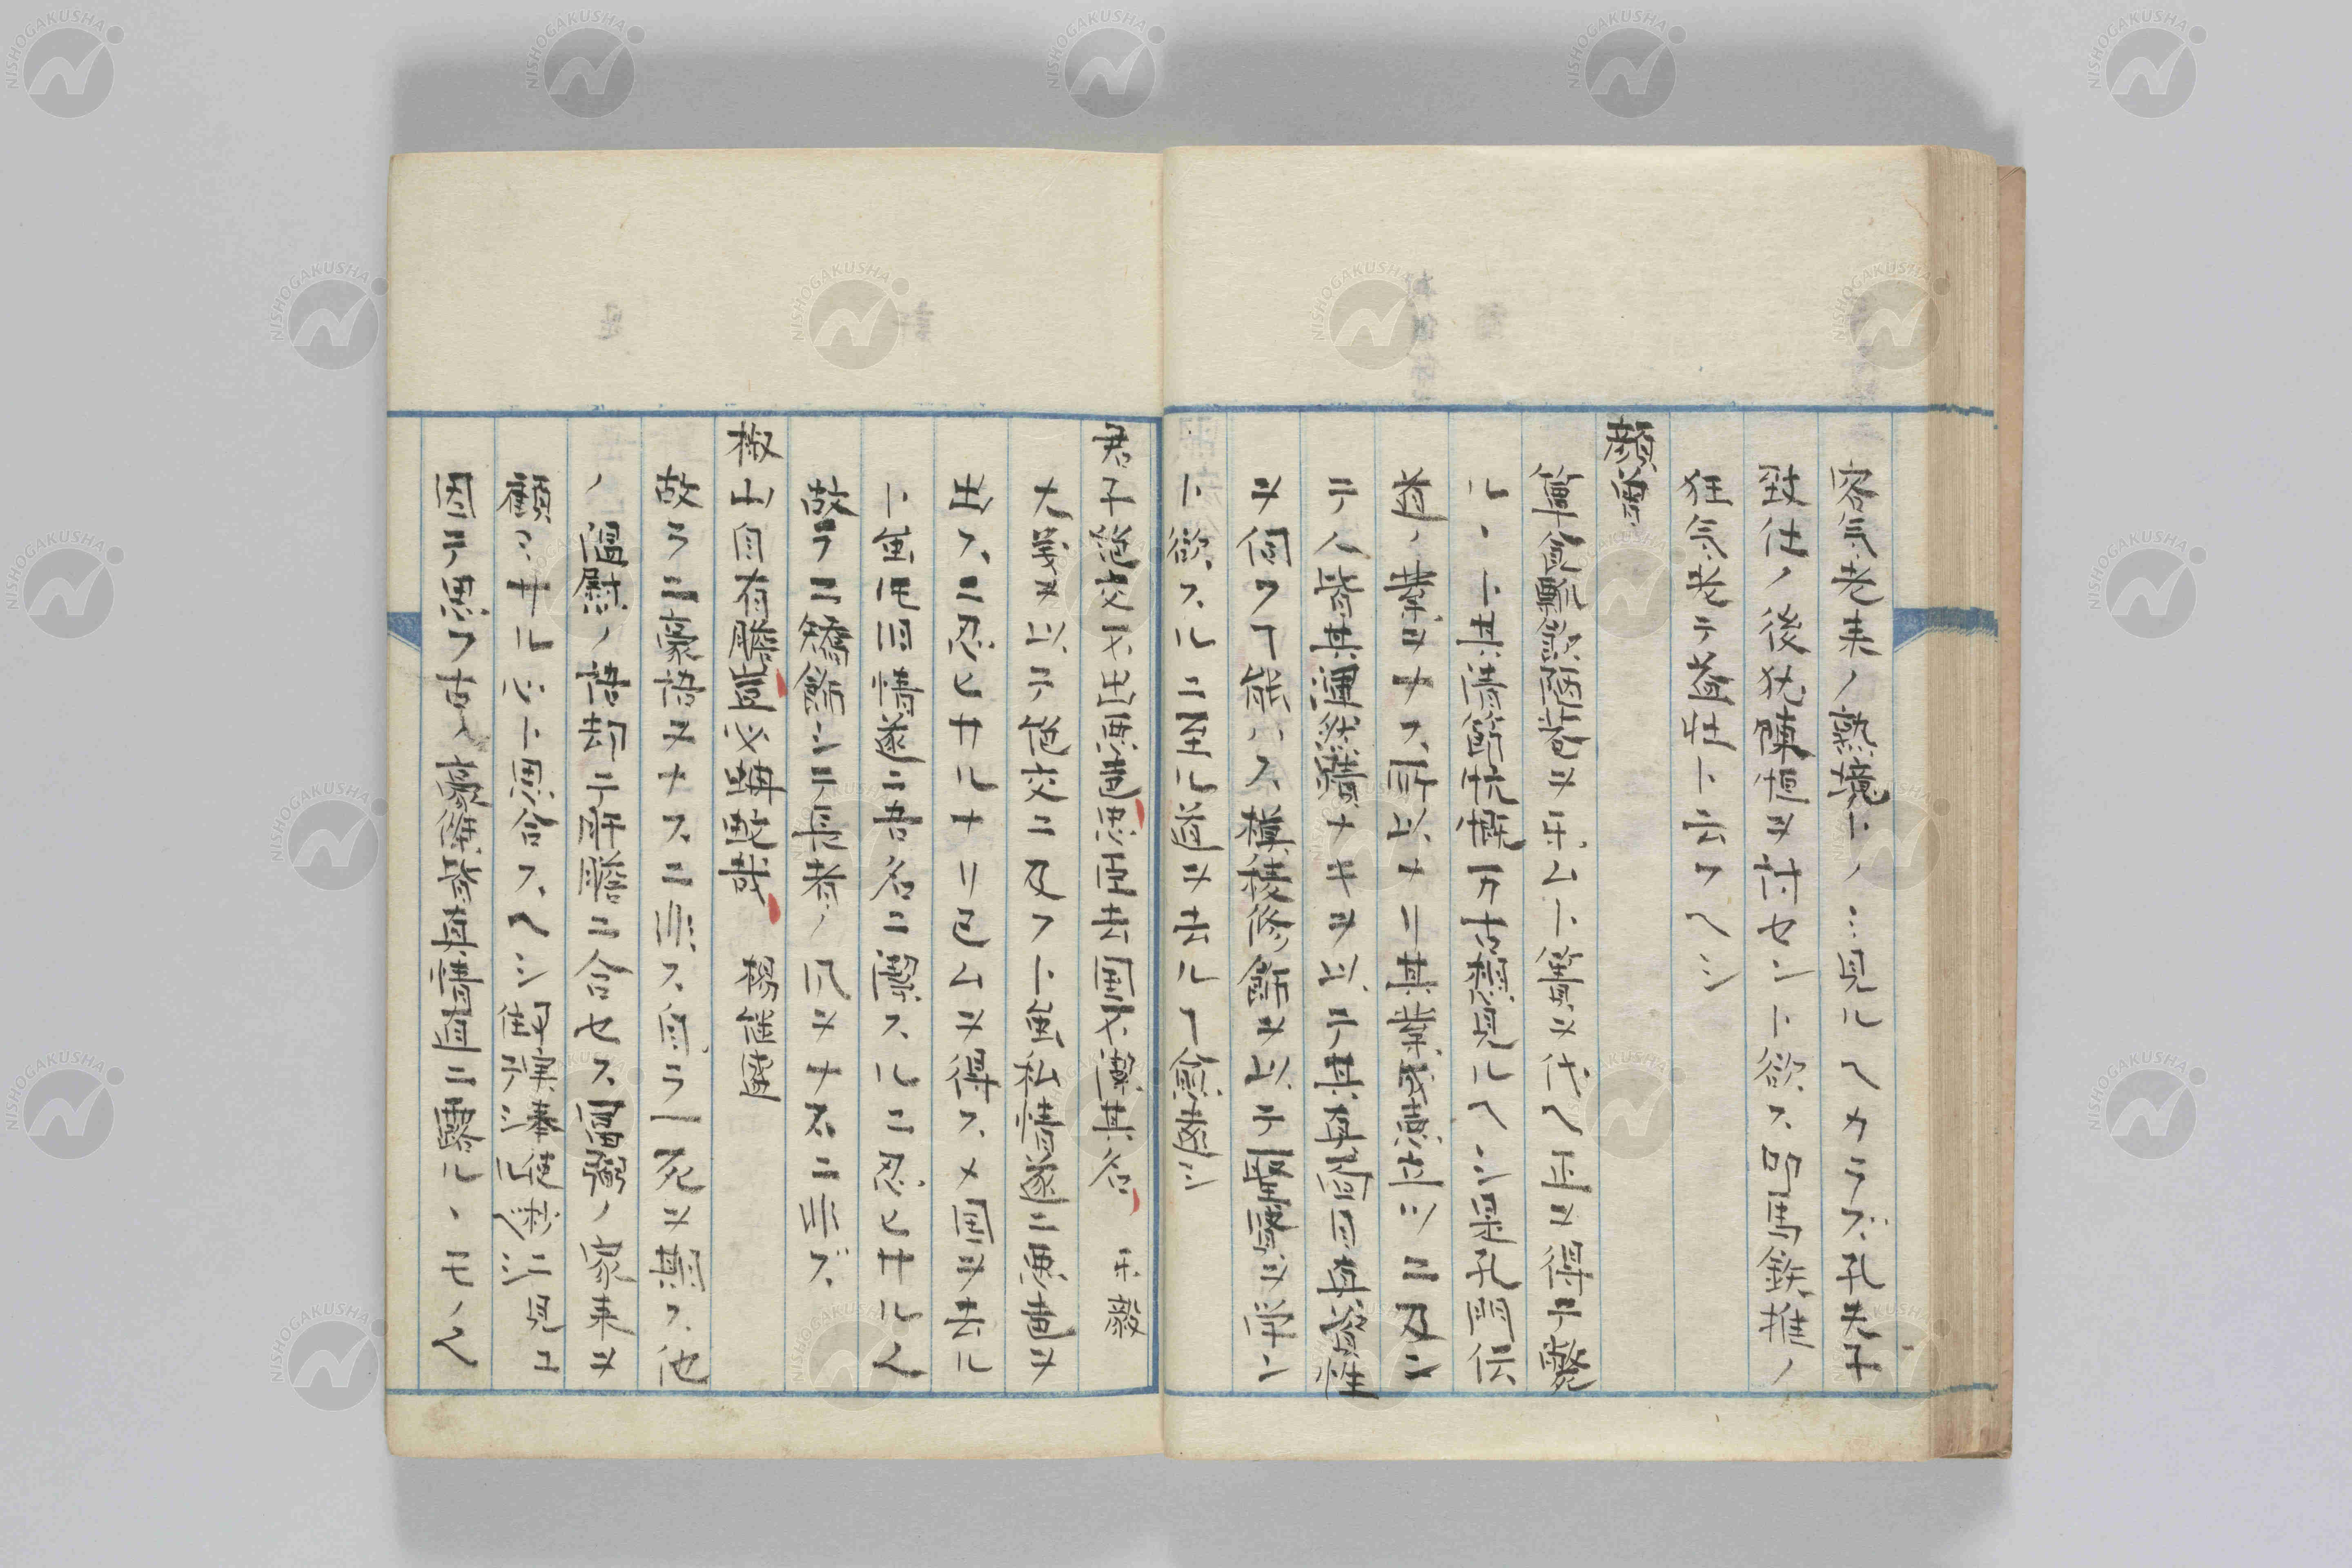 容気老来ノ熟境トノミ見ルヘカラズ孔夫子
致仕ノ後猶陳恒ヲ討セント欲ス叩馬鉄椎ノ
狂気老テ益壮ト云フヘシ
顔曾
簞食瓢飲陋巷ヲ楽ムト簀ヲ代ヘ正ヲ得テ斃
ルヽト其清節忼慨万古想見ルヘシ是孔門伝
道ノ業ヲナス所以ナリ其業成徳立ツニ及ン
テハ皆其渾然蹟ナキヲ以テ其真何
ヲ伺フ能ハス模稜修飾ヲ以テ聖賢ヲ学ン
ト欲スルニ至ル道ヲ去ルヿ愈遠シ
君子絶交不出悪声忠臣去国不潔其名 楽毅
大義ヲ以テ絶交ニ及フト雖私情遂ニ悪声ヲ
出スニ忍ヒサルナリ已ムヲ得スメ国ヲ去ル
ト雖旧情遂ニ吾名ニ潔スルニ忍ヒサルヘ
故ラニ矯飾シテ長者ノ風ヲナスニ非ズ
椒山自有膽豈必蚺蛇哉 楊継盛
故ラニ豪語ヲナスニ非ス自ラ一死ヲ期ス他
ノ慍尉ノ語却テ肝膽ニ合セス富弼ノ家来ヲ
顧ミサル心ト思合スヘシ
因テ思フ古人豪傑皆真情直ニ露ルヽモノヘ